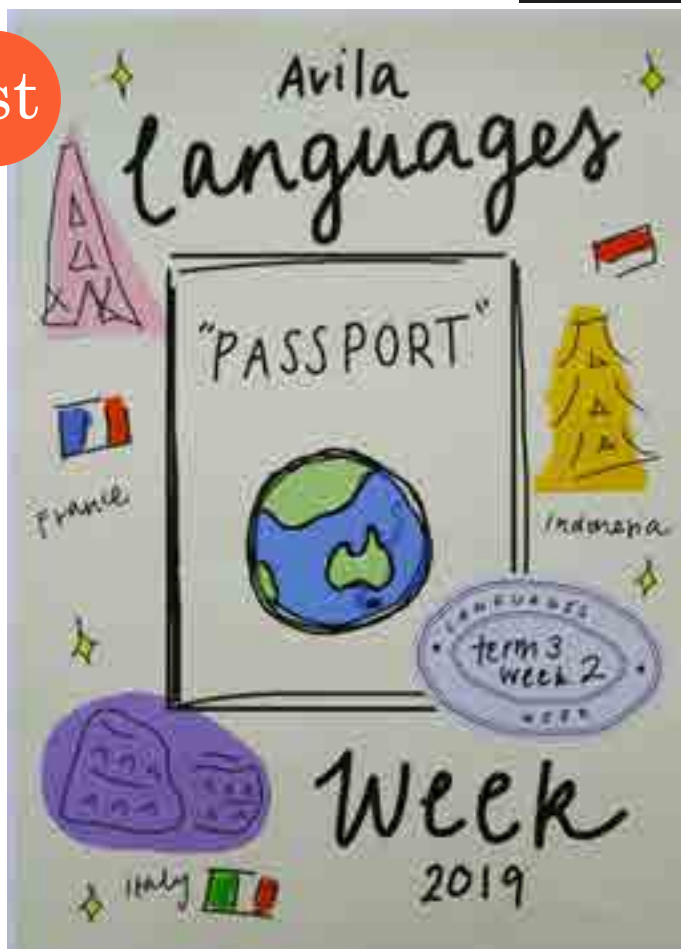 st
Avila
Languages
"PASSPORT"
France
Indonesia
LANGUAGES
term 3
week 2
WEEK
Week
Italy
2019